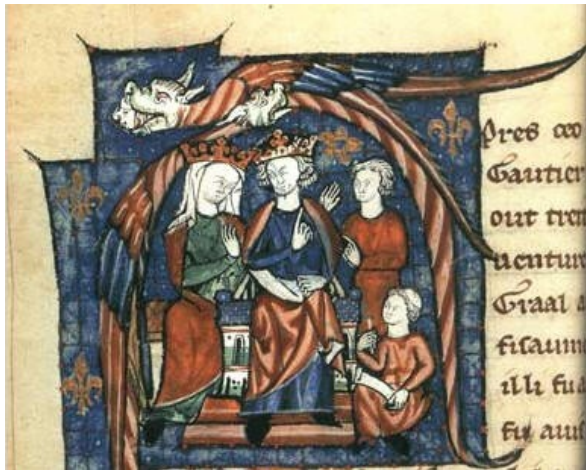 pres ce
Gautier
out tre
uenture
Graal
fisaum
illi fu
fu auis